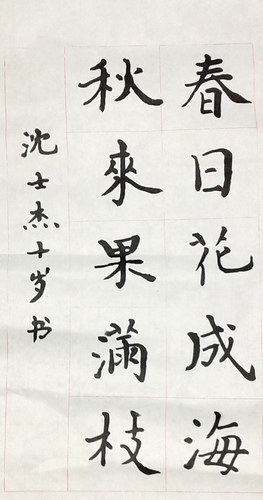 春日花成海
秋來果滿枝
沈士杰十岁书